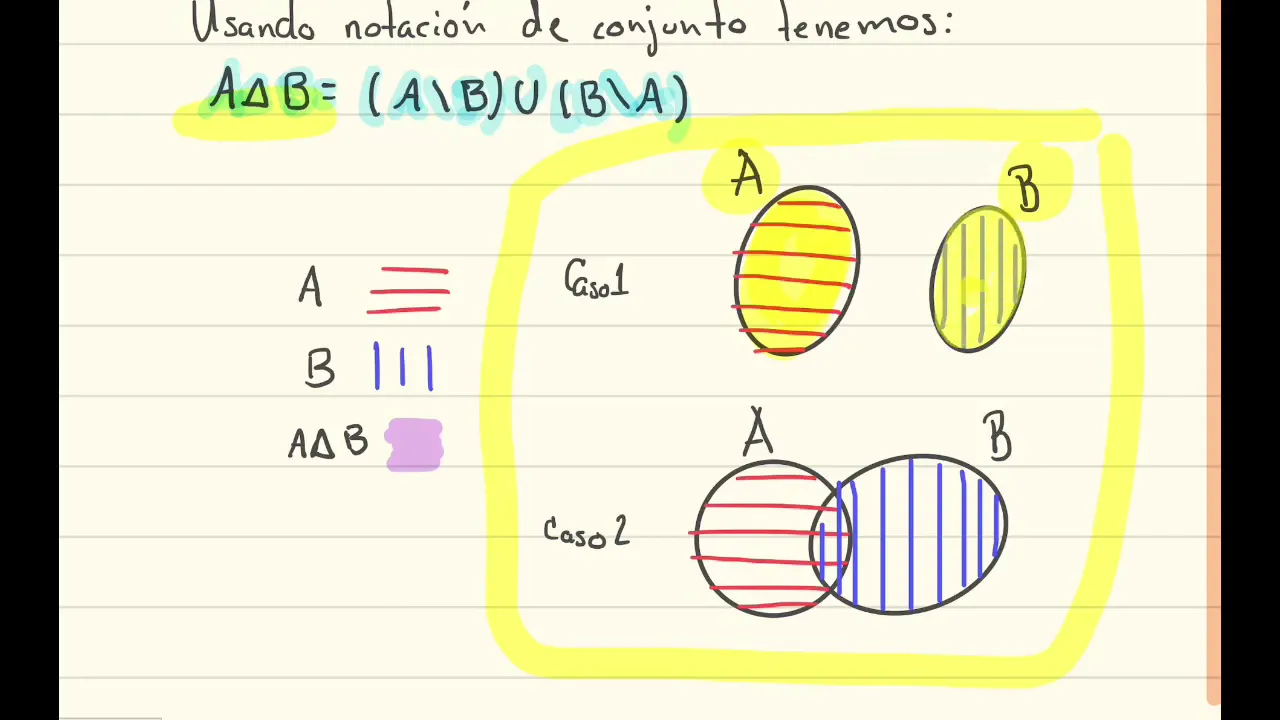 Usando notación de conjunto tenemos:
A Δ B = (A \ B) ∪ (B \ A)
A B
Caso 1
A
B
A Δ B
A B
Caso 2